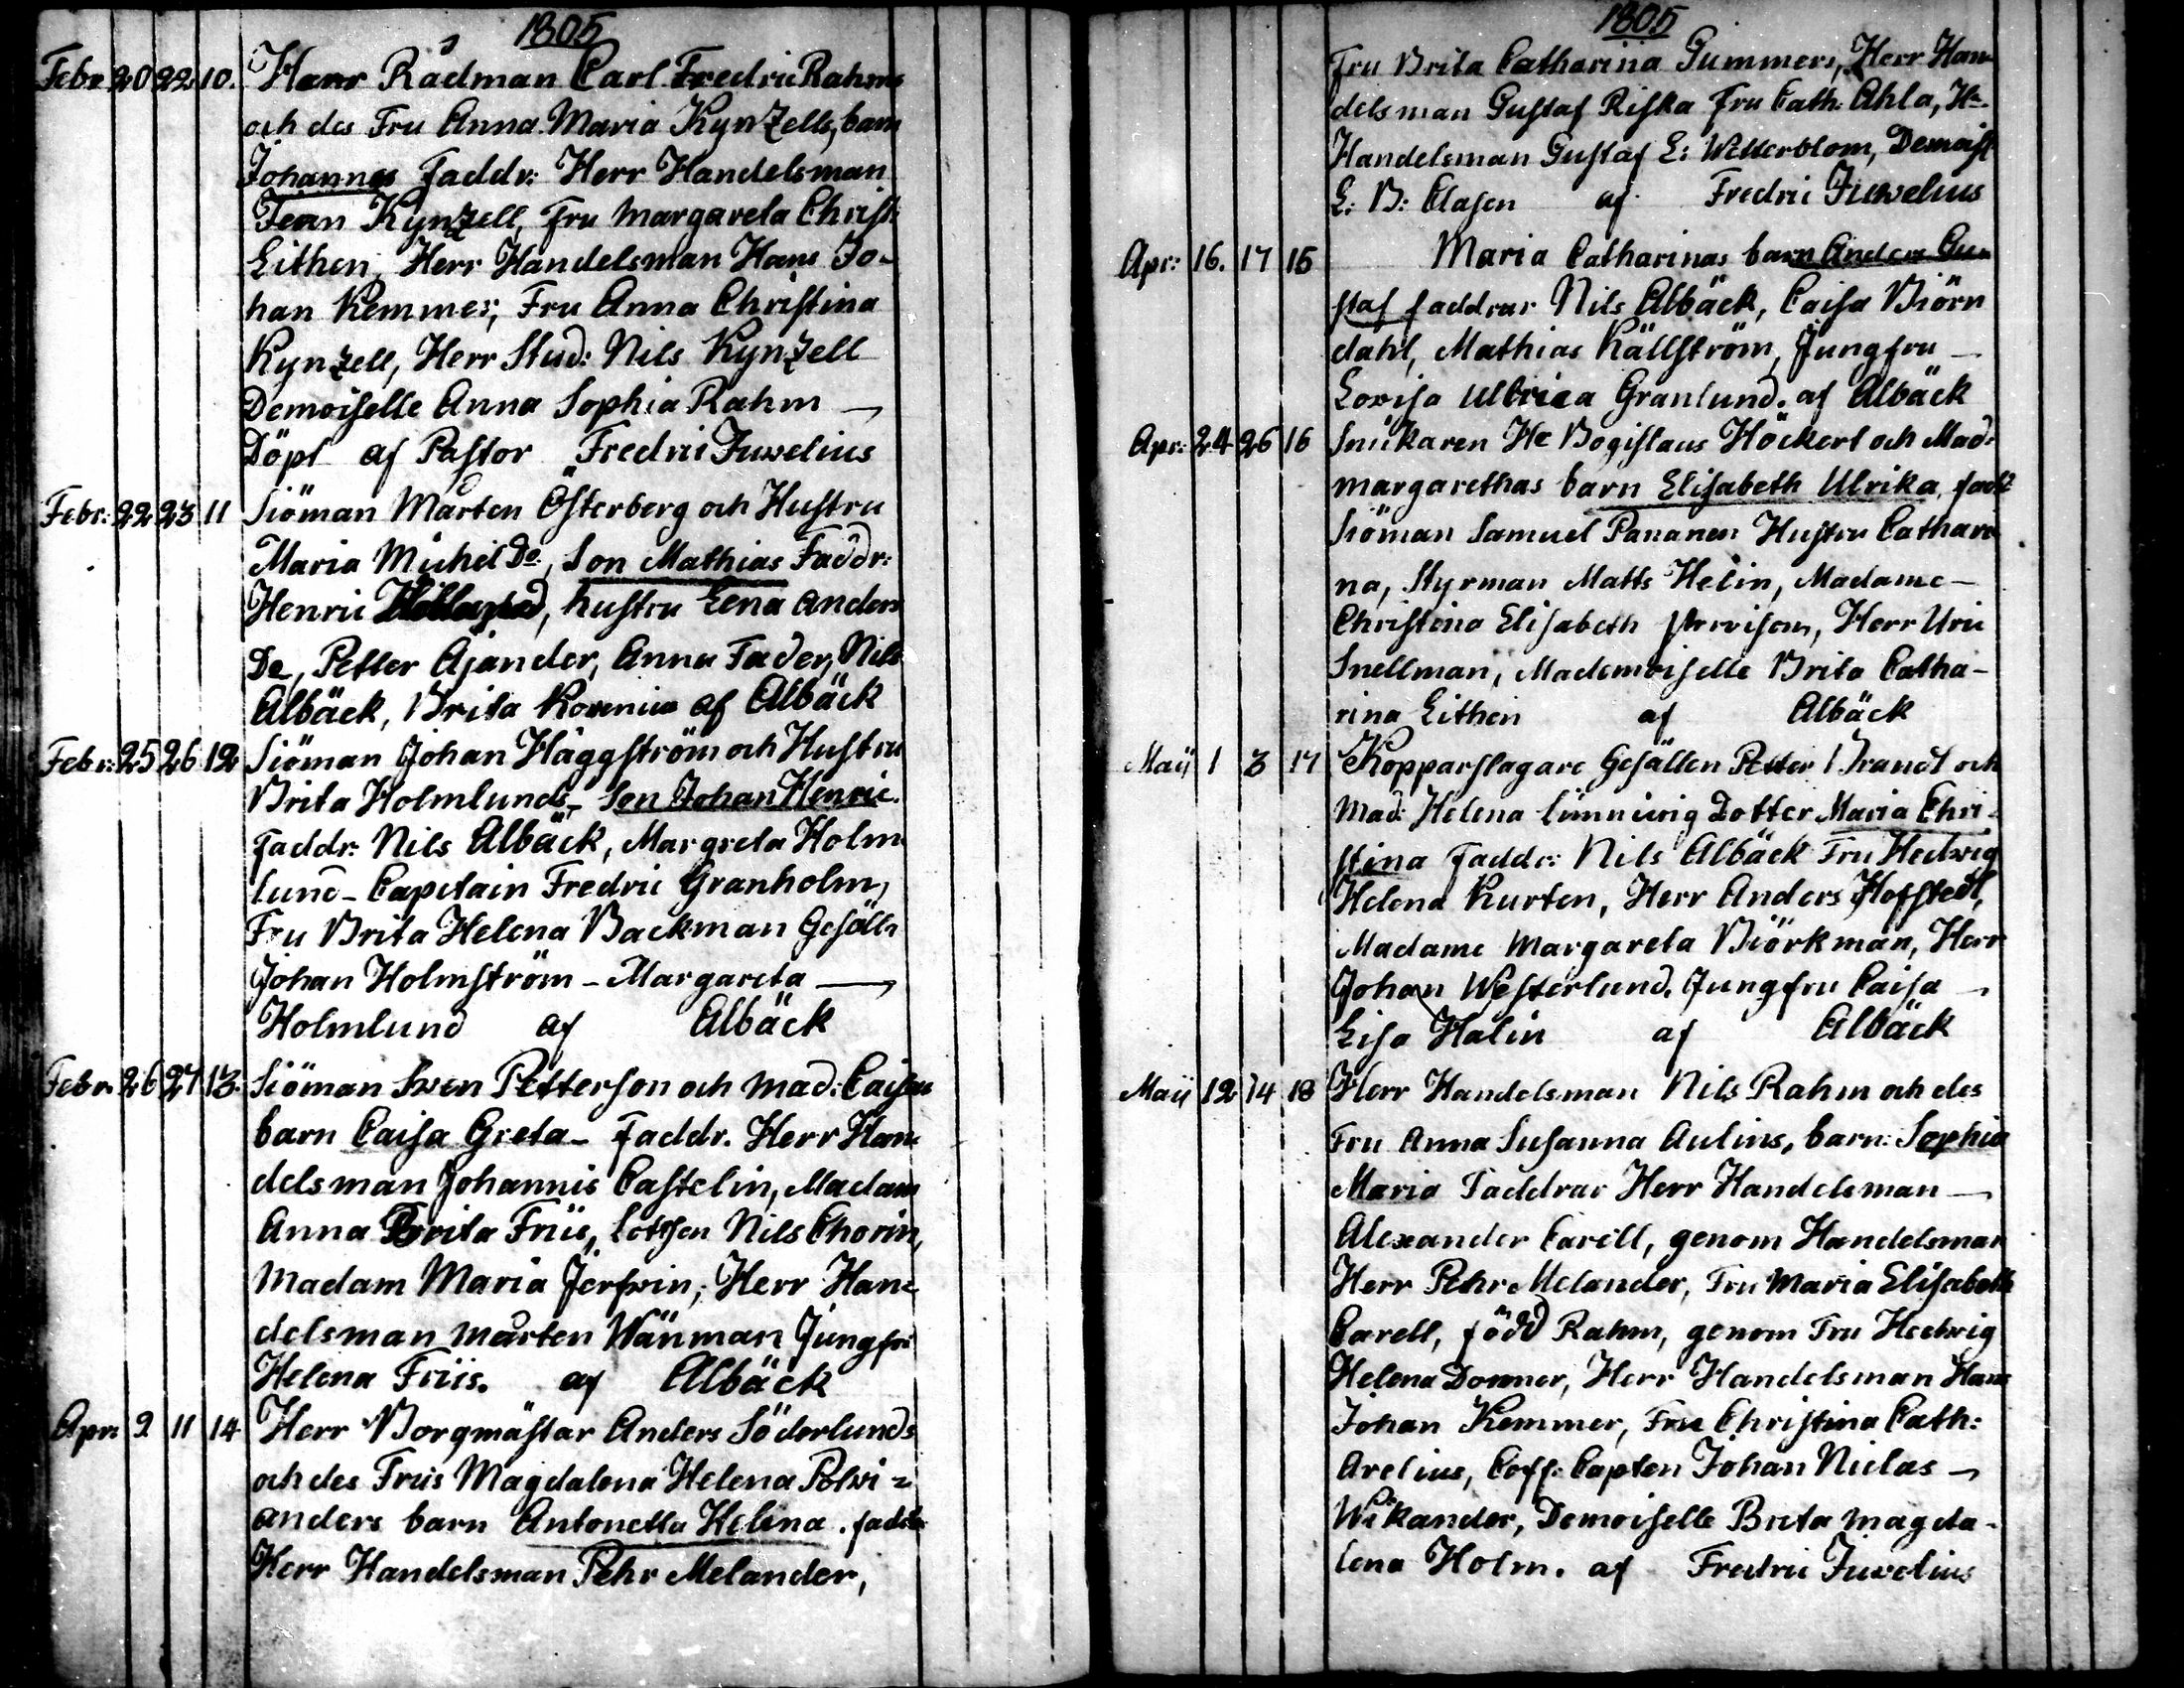 1805
Febr 20 22 10. Herr Rådman Carl Fredric Rahms
och des Fru Anna Maria Kynzells, barn
Johannes Faddr: Herr Handelsman
Jean Kynzell, Fru Margareta Christ:
Lithen, Herr Handelsman Hans Jo-
han Kemmer, Fru Anna Christina
Kynzell, Herr Stud: Nils Kynzell
Demoiselle Anna Sophia Rahm —
Döpt af Pastor Fredric Juvelius
Febr: 22 23 11 Siöman Mårten Österberg och Hustru
Maria Michel Dr, Son Mathias Faddr:
Henric hustru Lena Anders
Dr, Petter Ajander, Anna Fader, Nils
Albäck, Brita Rosenius af Albäck
Febr: 25 26 12 Siöman Johan Häggström och Hustru
Brita Holmlunds - Son Johan Henric.
Faddr: Nils Albäck, Margreta Holm
lund - Capitain Fredric Granholm,
Fru Brita Helena Backman Gesälln
Johan Holmström - Margareta —
Holmlund af Albäck
Febr. 26 27 13. Siöman Swen Petterson och Mad: Caisas
barn Caisa Greta - Faddr. Herr Han-
delsman Johannis Castelin, Madam
Anna Brita Friis, lotssen Nils Thorin,
Madam Maria Jerfwin, Herr Han-
delsman Mårten Wänman Jungfr:
Helena Friis. af Albäck
Apr: 9 11 14 Herr Borgmästar Anders Söderlunds
och des Frus Magdalena Helena Polvi=
anders barn Antonetta Helena. faddr
Herr Handelsman Pehr Melander,
1805
Fru Brita Catharina Gummerus, Herr Han
delsman Gustaf Riska Fru Cath: Ahla, Hr
Handelsman Gustaf L: Wetterblom, Demoisl
L: B: Clasen af Fredric Juvelius
Apr: 16. 17 15 Maria Catharinas barn Anders Gu
staf faddrar Nils Albäck, Caisa Biörn
dahl, Mathias Källström, Jungfru —
Lovisa Ulbrica Granlund. af Albäck
Apr: 24 26 16 Snickaren Hr Bogislaus Höckert och Mad:
Margarethas barn Elisabeth Ulrika. fadd
Siöman Samuel Pananen Hustru Cathari
na, Styrman Matts Helin, Madame —
Christina Elisabeth Herr Uric
Snellman, Mademoiselle Brita Catha-
rina Lithen af Albäck
Maij 1 3 17 Kopparslagare Gesällen Petter Brandt och
Mad: Helena Dotter Maria Chri-
stina Faddr: Nils Albäck Fru Hedwig
Helena Kurten, Herr Anders Hofstedt,
Madame Margareta Biörkman, Herr
Johan Westerlund. Jungfru Caisa —
Lisa Halin af Albäck
Maij 12 14 18 Herr Handelsman Nils Rahm och des
Fru Anna Susanna Aulins, barn: Sophia
Maria Faddrar Herr Handelsman —
Alexander Carell, genom Handelsman
Herr Pehr Melander, Fru Maria Elisabeth
Carell, född Rahm, genom Fru Hedwig
Helena Donner, Herr Handelsman Hans
Johan Kemmer, Fru Christina Cath:
Arelius, Coff: Capten Johan Niclas —
Wikander, Demoiselle Brita Magda-
lena Holm. af Fredric Juvelius